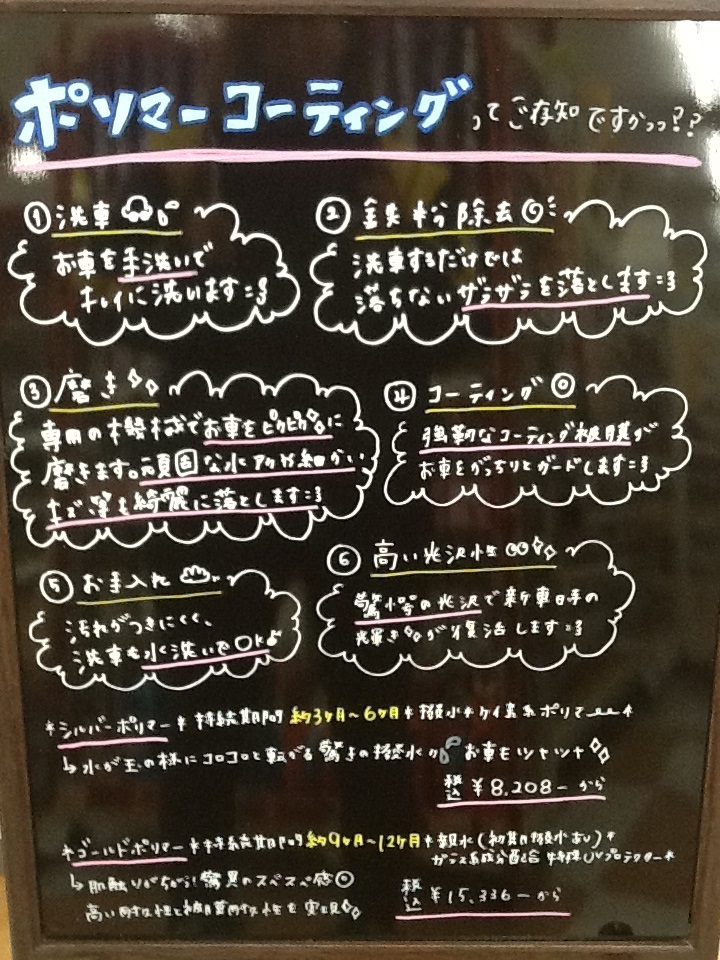 ポリマーコーティングってご存知ですかっっ??
① 洗車
お車を手洗いで
キレイに洗います=3
② 鉄粉除去◎
洗車するだけでは
落ちないザラザラを落とします=3
③ 磨き
専用の機械でお車をピカピカに
磨きます。頑固な水アカや細かい
キズ等も綺麗に落とします=3
④ コーティング◎
強靭なコーティング被膜が
お車をがっちりとガードします=3
⑤ お手入れ
汚れがつきにくく、
洗車も水洗いでOK♪
⑥ 高い光沢性
驚愕の光沢で新車時の
輝きが復活します=3
*シルバーポリマー* 持続期間 約3ヶ月〜6ヶ月*撥水*ケイ素系ポリマー*
↳ 水が玉の様にコロコロと転がる驚きの撥水力 お車もツヤツヤ
税込 ¥8,208-から
*ゴールドポリマー* 持続期間 約9ヶ月〜12ヶ月*親水(初期撥水あり)*
ガラス系成分配合 特殊UVプロテクター*
↳ 肌触りがちがう!驚異のスベスベ感◎
高い耐久性と被膜耐久性を実現
税込 ¥15,336-から